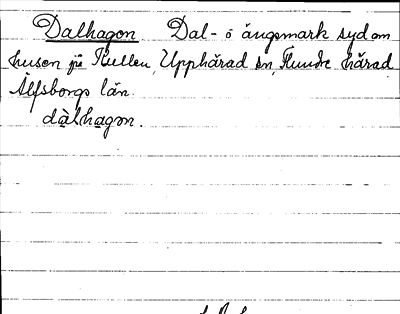 Dalhagon Dal- o ängsmark syd om
husen på Kullen, Upphärad sn, Flundre härad
Älfsborgs län.
dàlhagon.